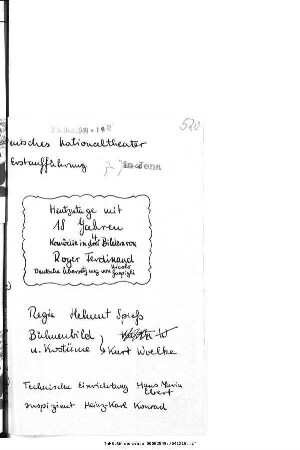 520
nisches Nationaltheater
Erstaufführung
in Jena
Heutzutage mit
18 Jahren
Komödie in drei Bildern von
4
Roger Ferdinand
Deutsche Übersetzung von Nicolo
Regie Helmut Spieß
Bühnenbild
u. Kostüme } Kurt Woelke
Technische Einrichtung Hans Maria
Ebert
Inspizient Heinz-Karl Konrad